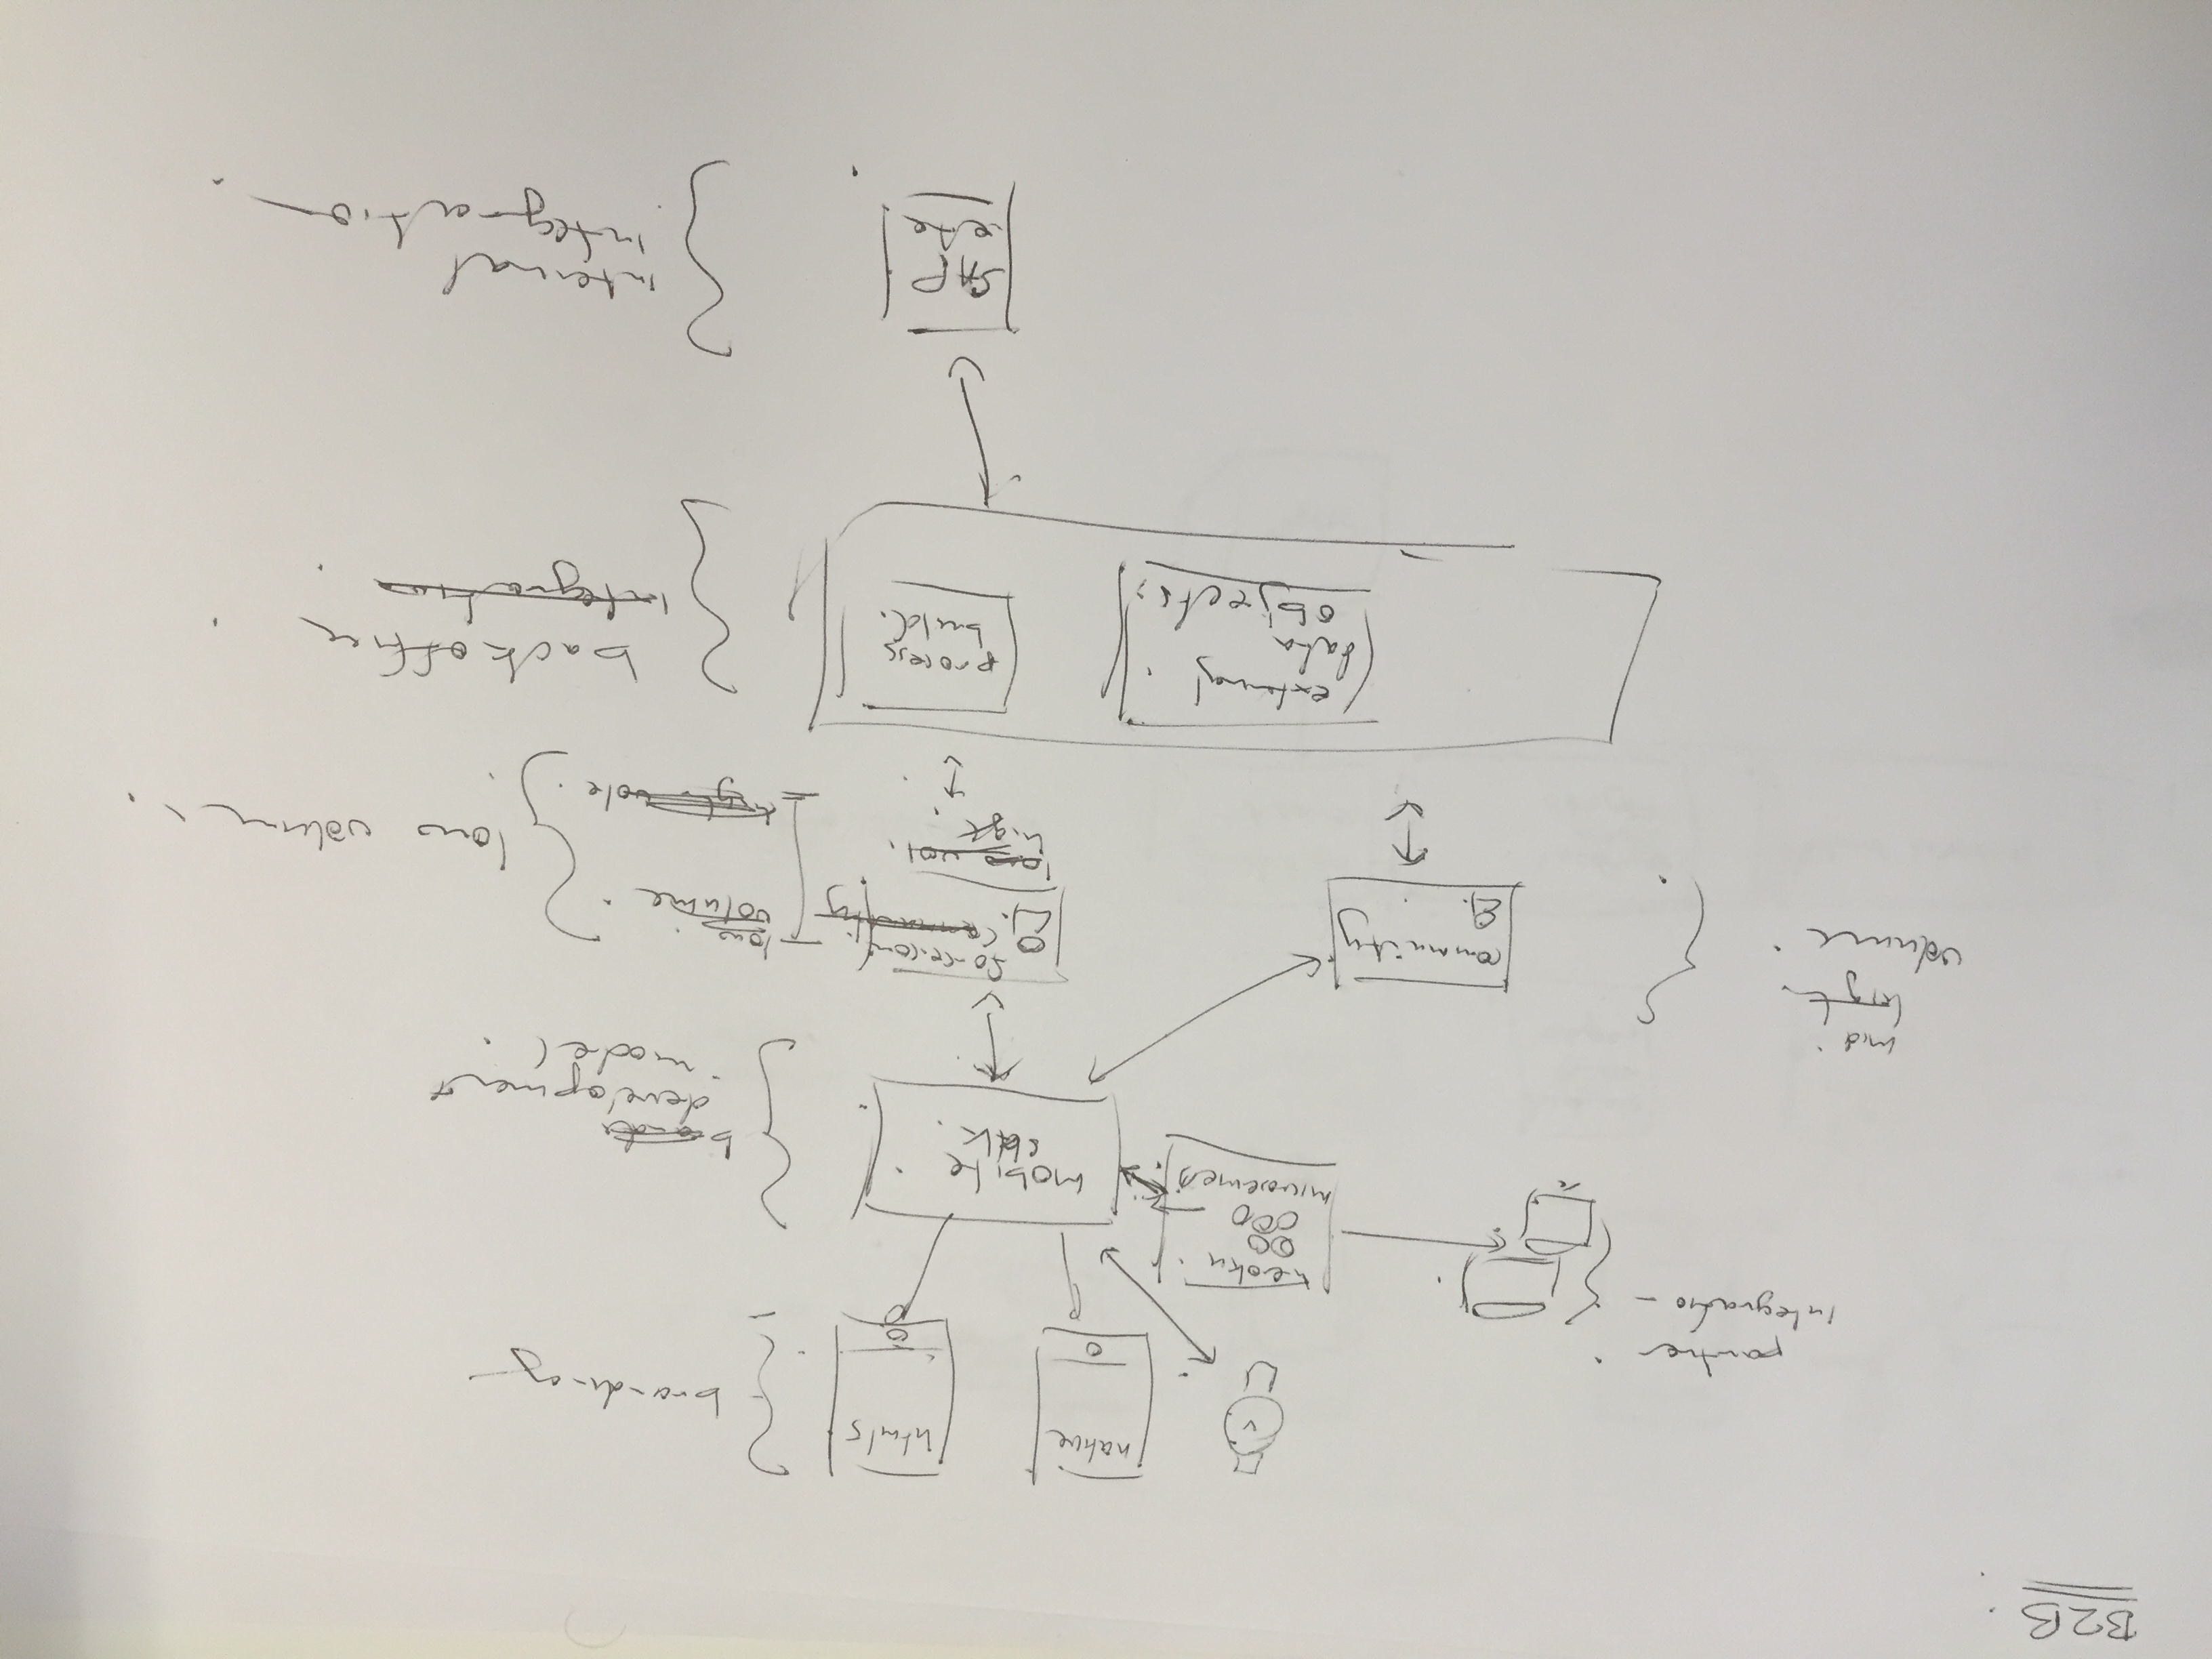 B2B.
native
html5
branding
partner
integration
heroku
microservices
mobile
sdk.
development
model.
mid
high
volume
community
force.com
community
low vol.
high
low
volume
low volume
vol
external
data
objects
process
build.
back office
integration
SAP
etc
internal
integration